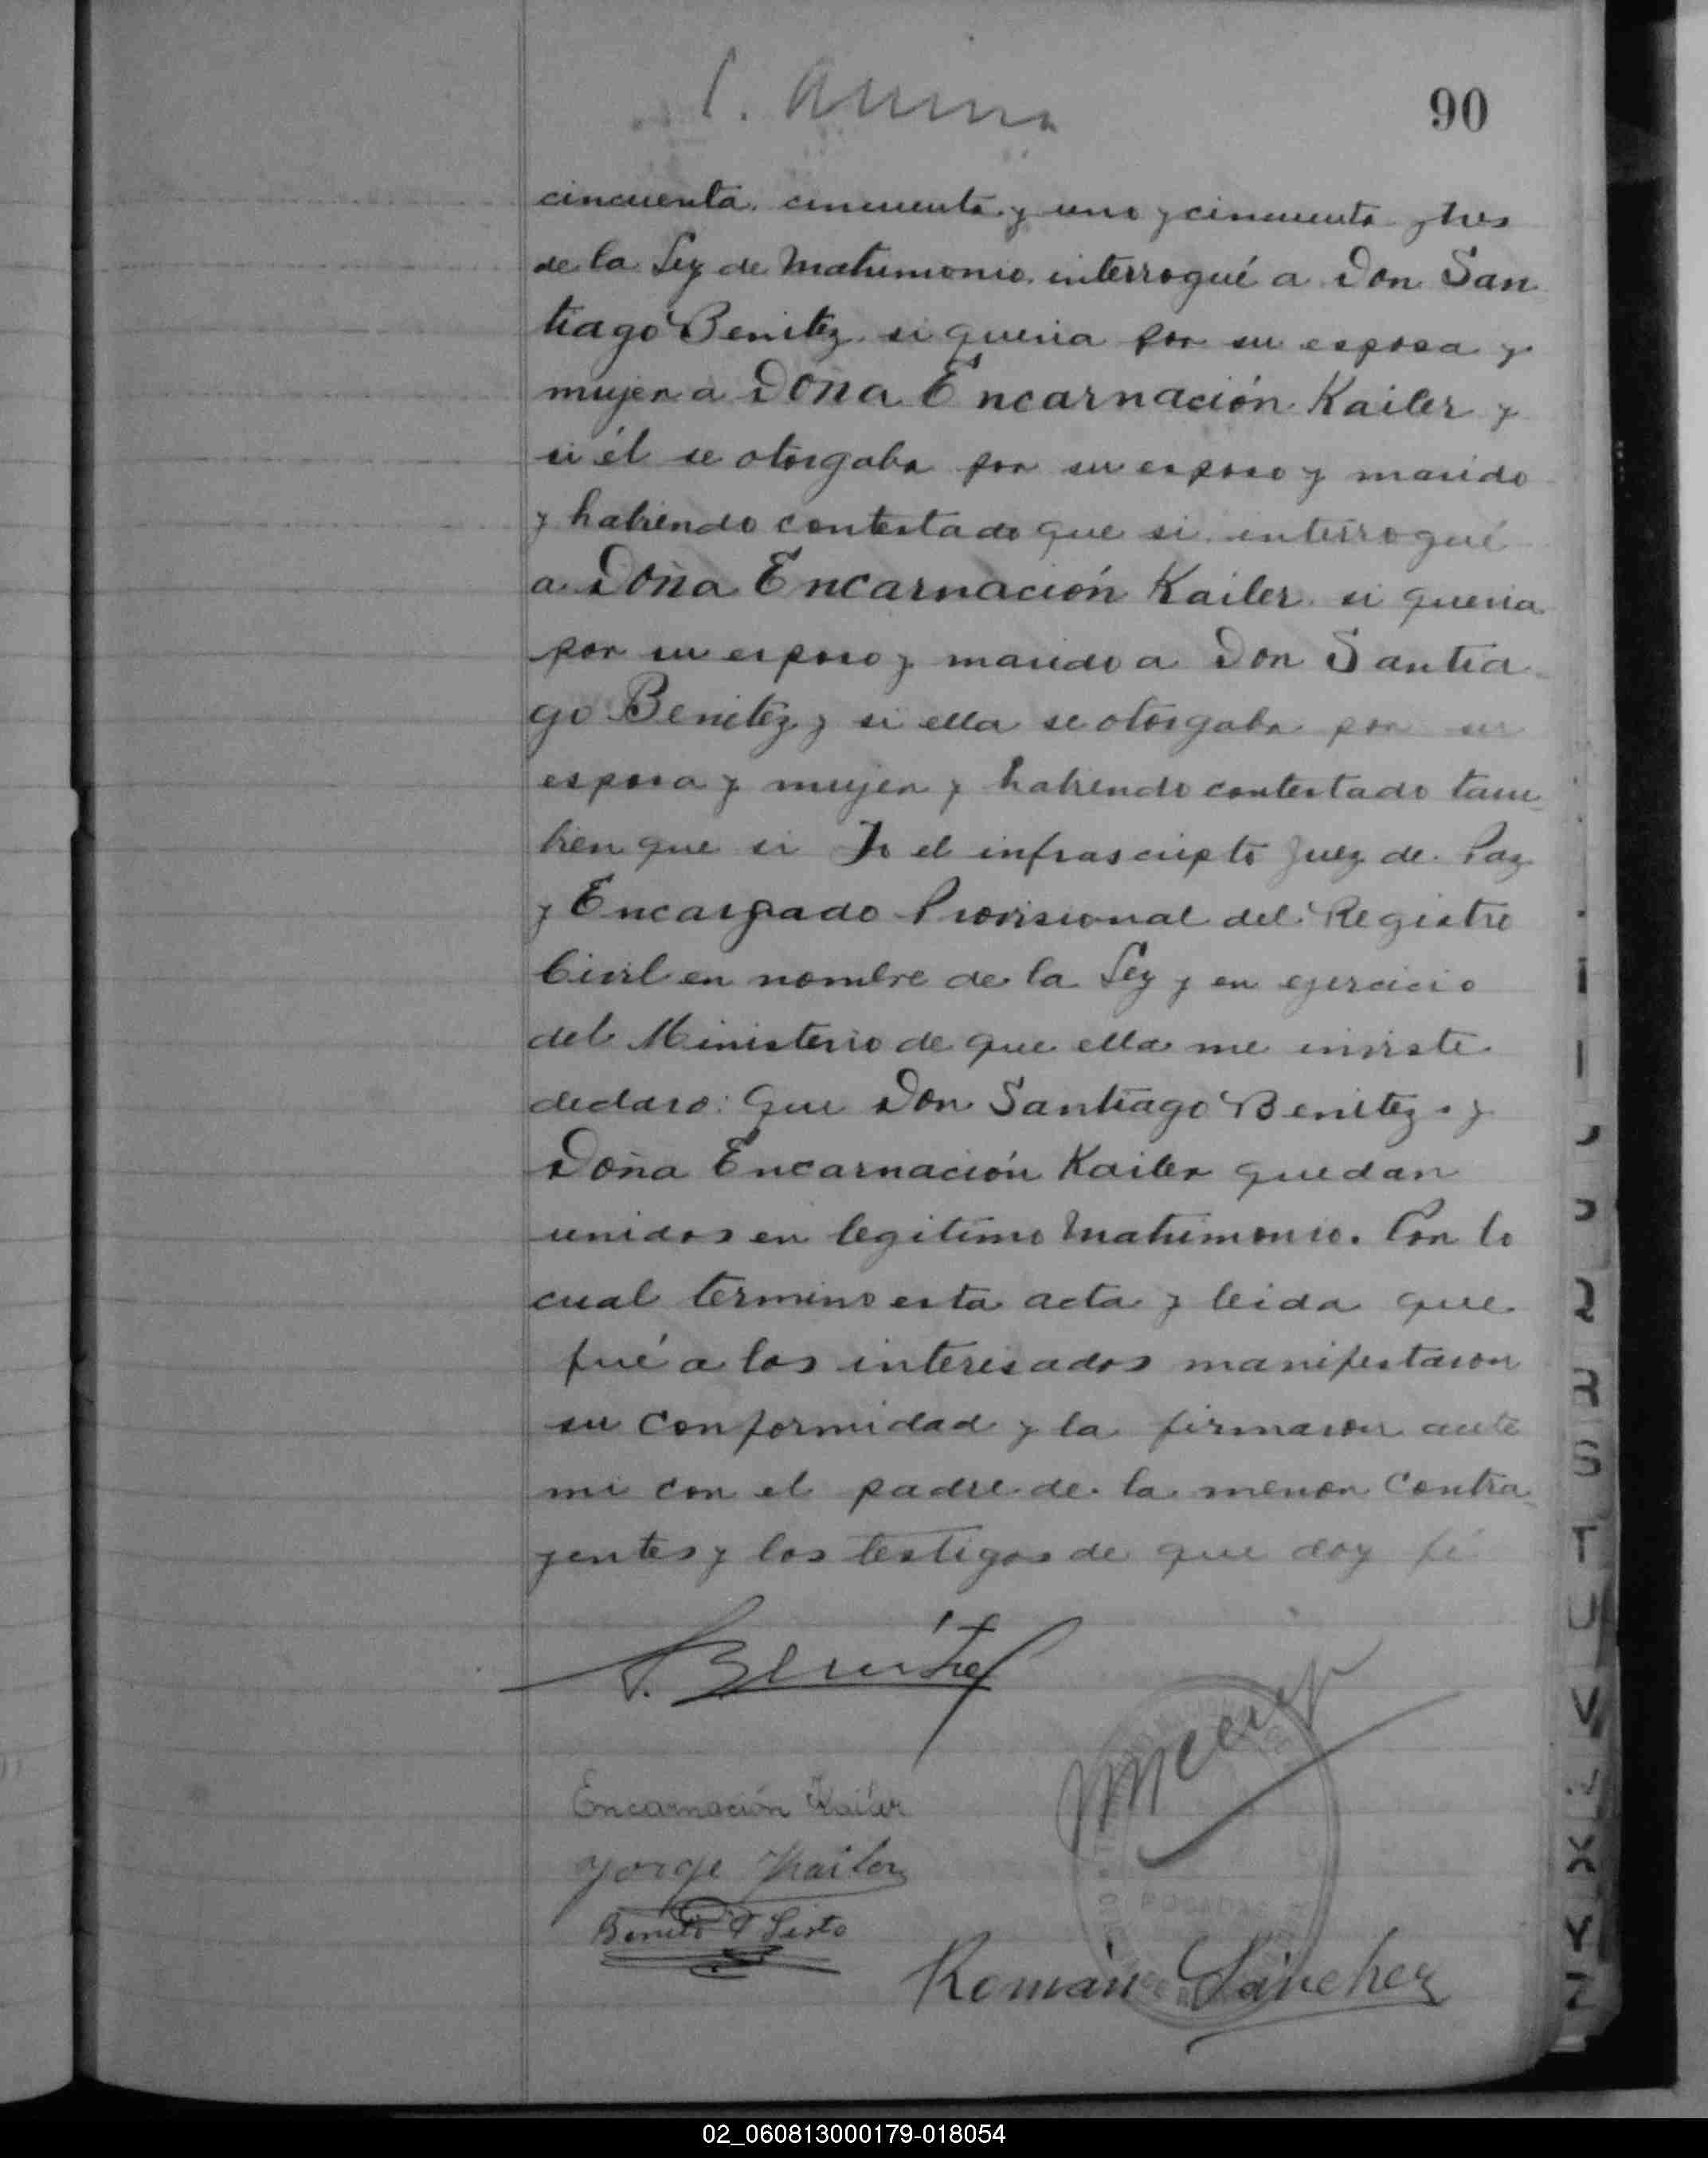 90
cincuenta. cincuenta y uno y cincuenta y tres
de la Ley de Matrimonio. interrogué a Don San
tiago Benitez. si queria por su esposa y
mujer a Doña Encarnación Kailer y
si él se otorgaba por su esposo y marido
y habiendo contestado que si. interrogué
a Doña Encarnación Kailer. si queria
por su esposo y marido a Don Santia
go Benitez y si ella se otorgaba por su
esposa y mujer y habiendo contestado tam
bien que si Yo el infrascripto Juez de Paz
y Encargado Provisional del Registro
Civil en nombre de la Ley y en ejercicio
del Ministerio de que ella me inviste
declaro: Que Don Santiago Benitez y
Doña Encarnación Kailer quedan
unidos en legitimo Matrimonio. Con lo
cual termino esta acta y leida que
fué a los interesados manifestaron
su conformidad y la firmaron ante
mi con el padre de la menor Contra
yentes y los testigos de que doy fé
S. Benítez
Encarnación Kailer
Jorge Kailer
Benito Sixto
Román Sánchez
R
S
T
U
V
X
Y
Z
02_060813000179-018054